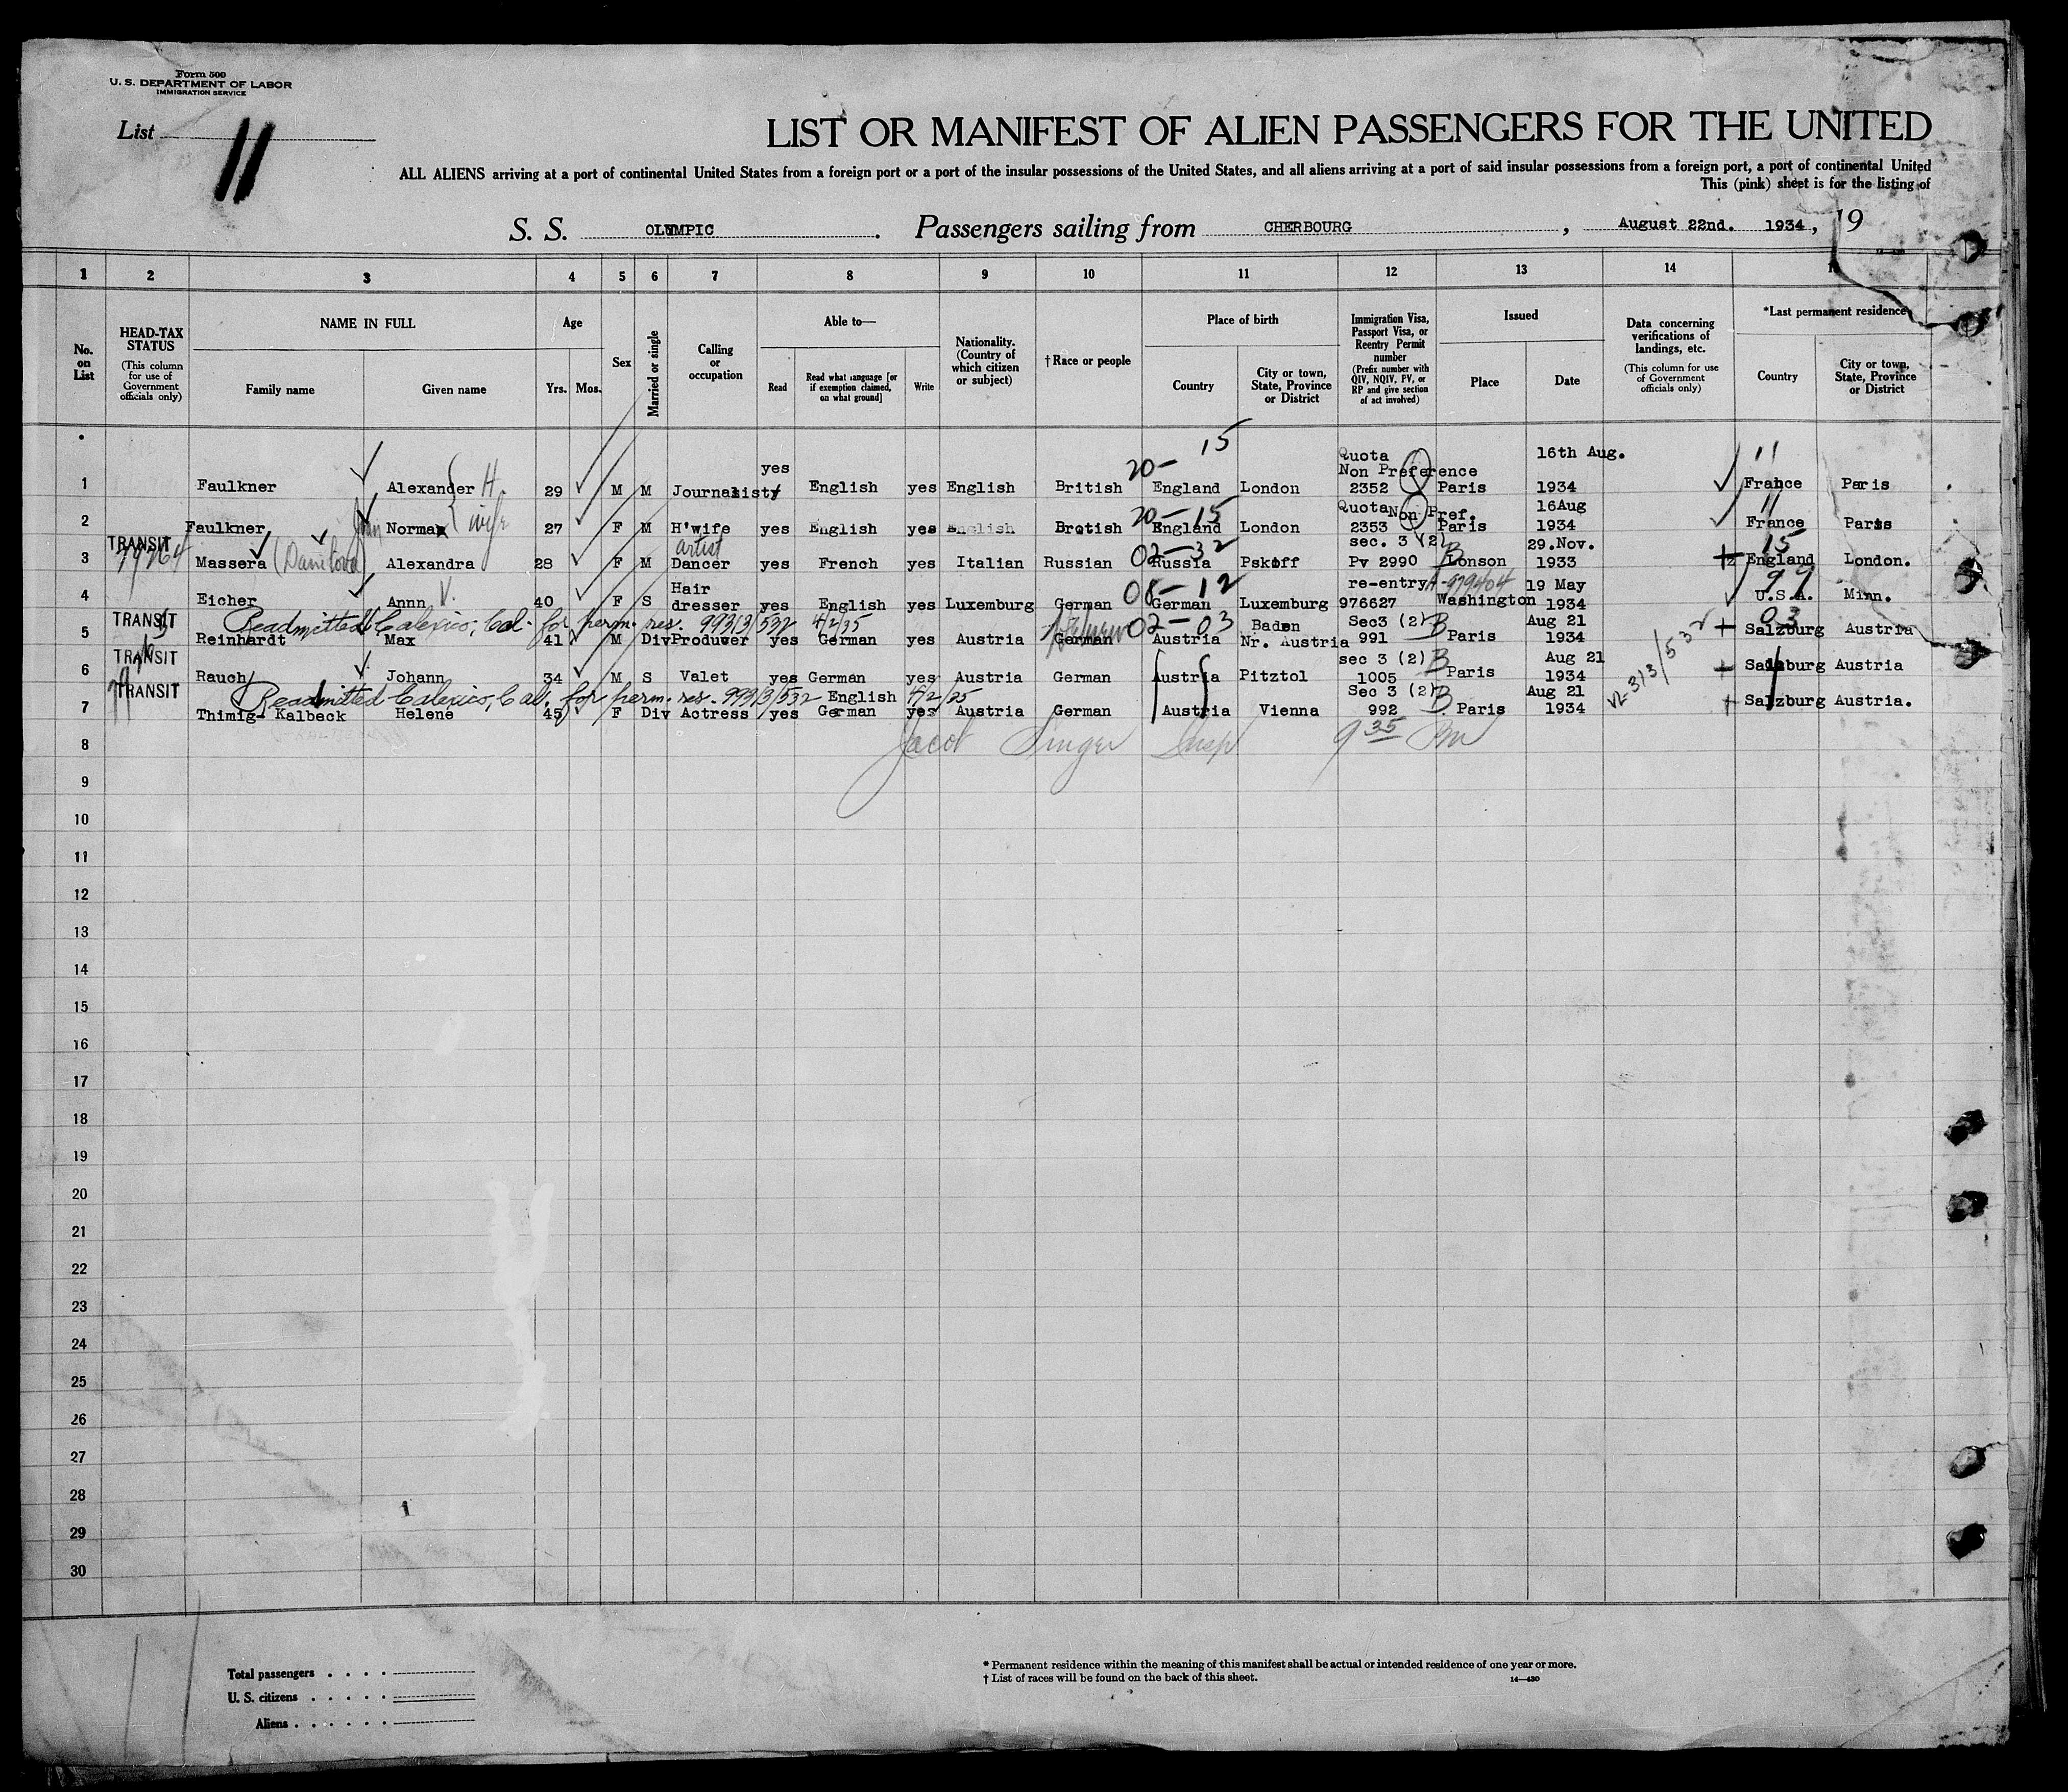 Form 500
U. S. DEPARTMENT OF LABOR
IMMIGRATION SERVICE
List 11
LIST OR MANIFEST OF ALIEN PASSENGERS FOR THE UNITED
ALL ALIENS arriving at a port of continental United States from a foreign port or a port of the insular possessions of the United States, and all aliens arriving at a port of said insular possessions from a foreign port, a port of continental United
This (pink) sheet is for the listing of
S. S. OLYMPIC. Passengers sailing from CHERBOURG, August 22nd. 1934, 19
1 2 3 4 5 6 7 8 9 10 11 12 13 14
No. on List
HEAD-TAX STATUS (This column for use of Government officials only)
NAME IN FULL Family name Given name
Age Yrs. Mos.
Sex
Married or single
Calling or occupation
Able to— Read Read what language [or if exemption claimed, on what ground] Write
Nationality. (Country of which citizen or subject)
† Race or people
Place of birth Country City or town, State, Province or District
Immigration Visa, Passport Visa, or Reentry Permit number (Prefix number with QIV, NQIV, PV, or RP and give section of act involved)
Issued Place Date
Data concerning verifications of landings, etc. (This column for use of Government officials only)
*Last permanent residence Country City or town, State, Province or District
20- 15 Quota 16th Aug. 11
yes Non Preference
1 Faulkner Alexander H. 29 M M Journalist English yes English British England London 2352 Paris 1934 France Paris
20-15 Quota Non Pref. 16Aug 11
2 Faulkner Norma wife 27 F M H'wife yes English yes English British England London 2353 Paris 1934 France Paris
TRANSIT artist 02-32 sec. 3 (2) 29.Nov. 15
3 Massera (Danilova) Alexandra 28 F M Dancer yes French yes Italian Russian Russia Pskoff Pv 2990 Lonson 1933 England London.
Hair 08-12 re-entry 979404 19 May 99
4 Eicher Annn V. 40 F S dresser yes English yes Luxemburg German German Luxemburg 976627 Washington 1934 U.S.A. Minn.
TRANSIT Readmitted Calexico, Cal. for perm. res. 993/3/532 4/2/35 Hebrew 02-03 Baden Sec3 (2) B Aug 21 03
5 Reinhardt Max 41 M Div Producer yes German yes Austria German Austria Nr. Austria 991 Paris 1934 V2-313/532 Salzburg Austria
TRANSIT sec 3 (2) B Aug 21
6 Rauch Johann 34 M S Valet yes German yes Austria German Austria Pitztol 1005 Paris 1934 Salzburg Austria
TRANSIT Readmitted Calexico, Cal. for perm. res. 993/3/532 English 4/2/35 Sec 3 (2) B Aug 21
7 Thimig- Kalbeck Helene 45 F Div Actress yes German yes Austria German Austria Vienna 992 Paris 1934 Salzburg Austria.
8 Jacob Singer Insp 9 35 Pm
9
10
11
12
13
14
15
16
17
18
19
20
21
22
23
24
25
26
27
28
29
30
Total passengers . . . .
U. S. citizens . . . . . .
Aliens . . . . . .
* Permanent residence within the meaning of this manifest shall be actual or intended residence of one year or more.
† List of races will be found on the back of this sheet. 14—430